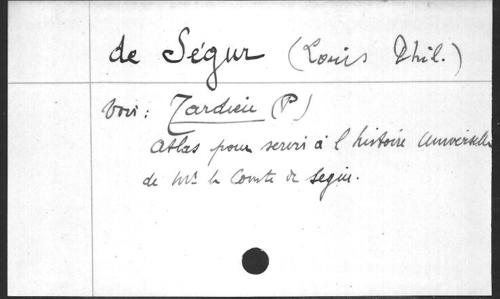 de Ségur (Louis Phil.)
Voir: Tardieu (P)
Atlas pour servir à l'histoire Universelle
de Mr le Comte de Ségur.